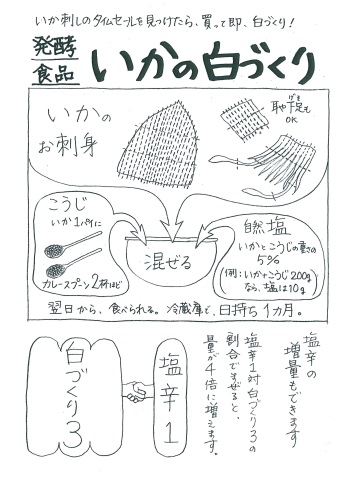 いか刺しのタイムセールを見つけたら、買って即、白づくり!
発酵
食品
いかの白づくり
いかの
お刺身
耳や下足も
OK
こうじ
いか1パイに
カレースプーン2杯ほど
混ぜる
自然塩
いかとこうじの重さの
5%
(例:いか+こうじ200g
なら、塩は10g)
翌日から、食べられる。冷蔵庫で、日持ち1カ月。
塩辛の
増量もできます
塩辛1対白づくり3の
割合でまぜると、
量が4倍に増えます。
塩辛1
白づくり3